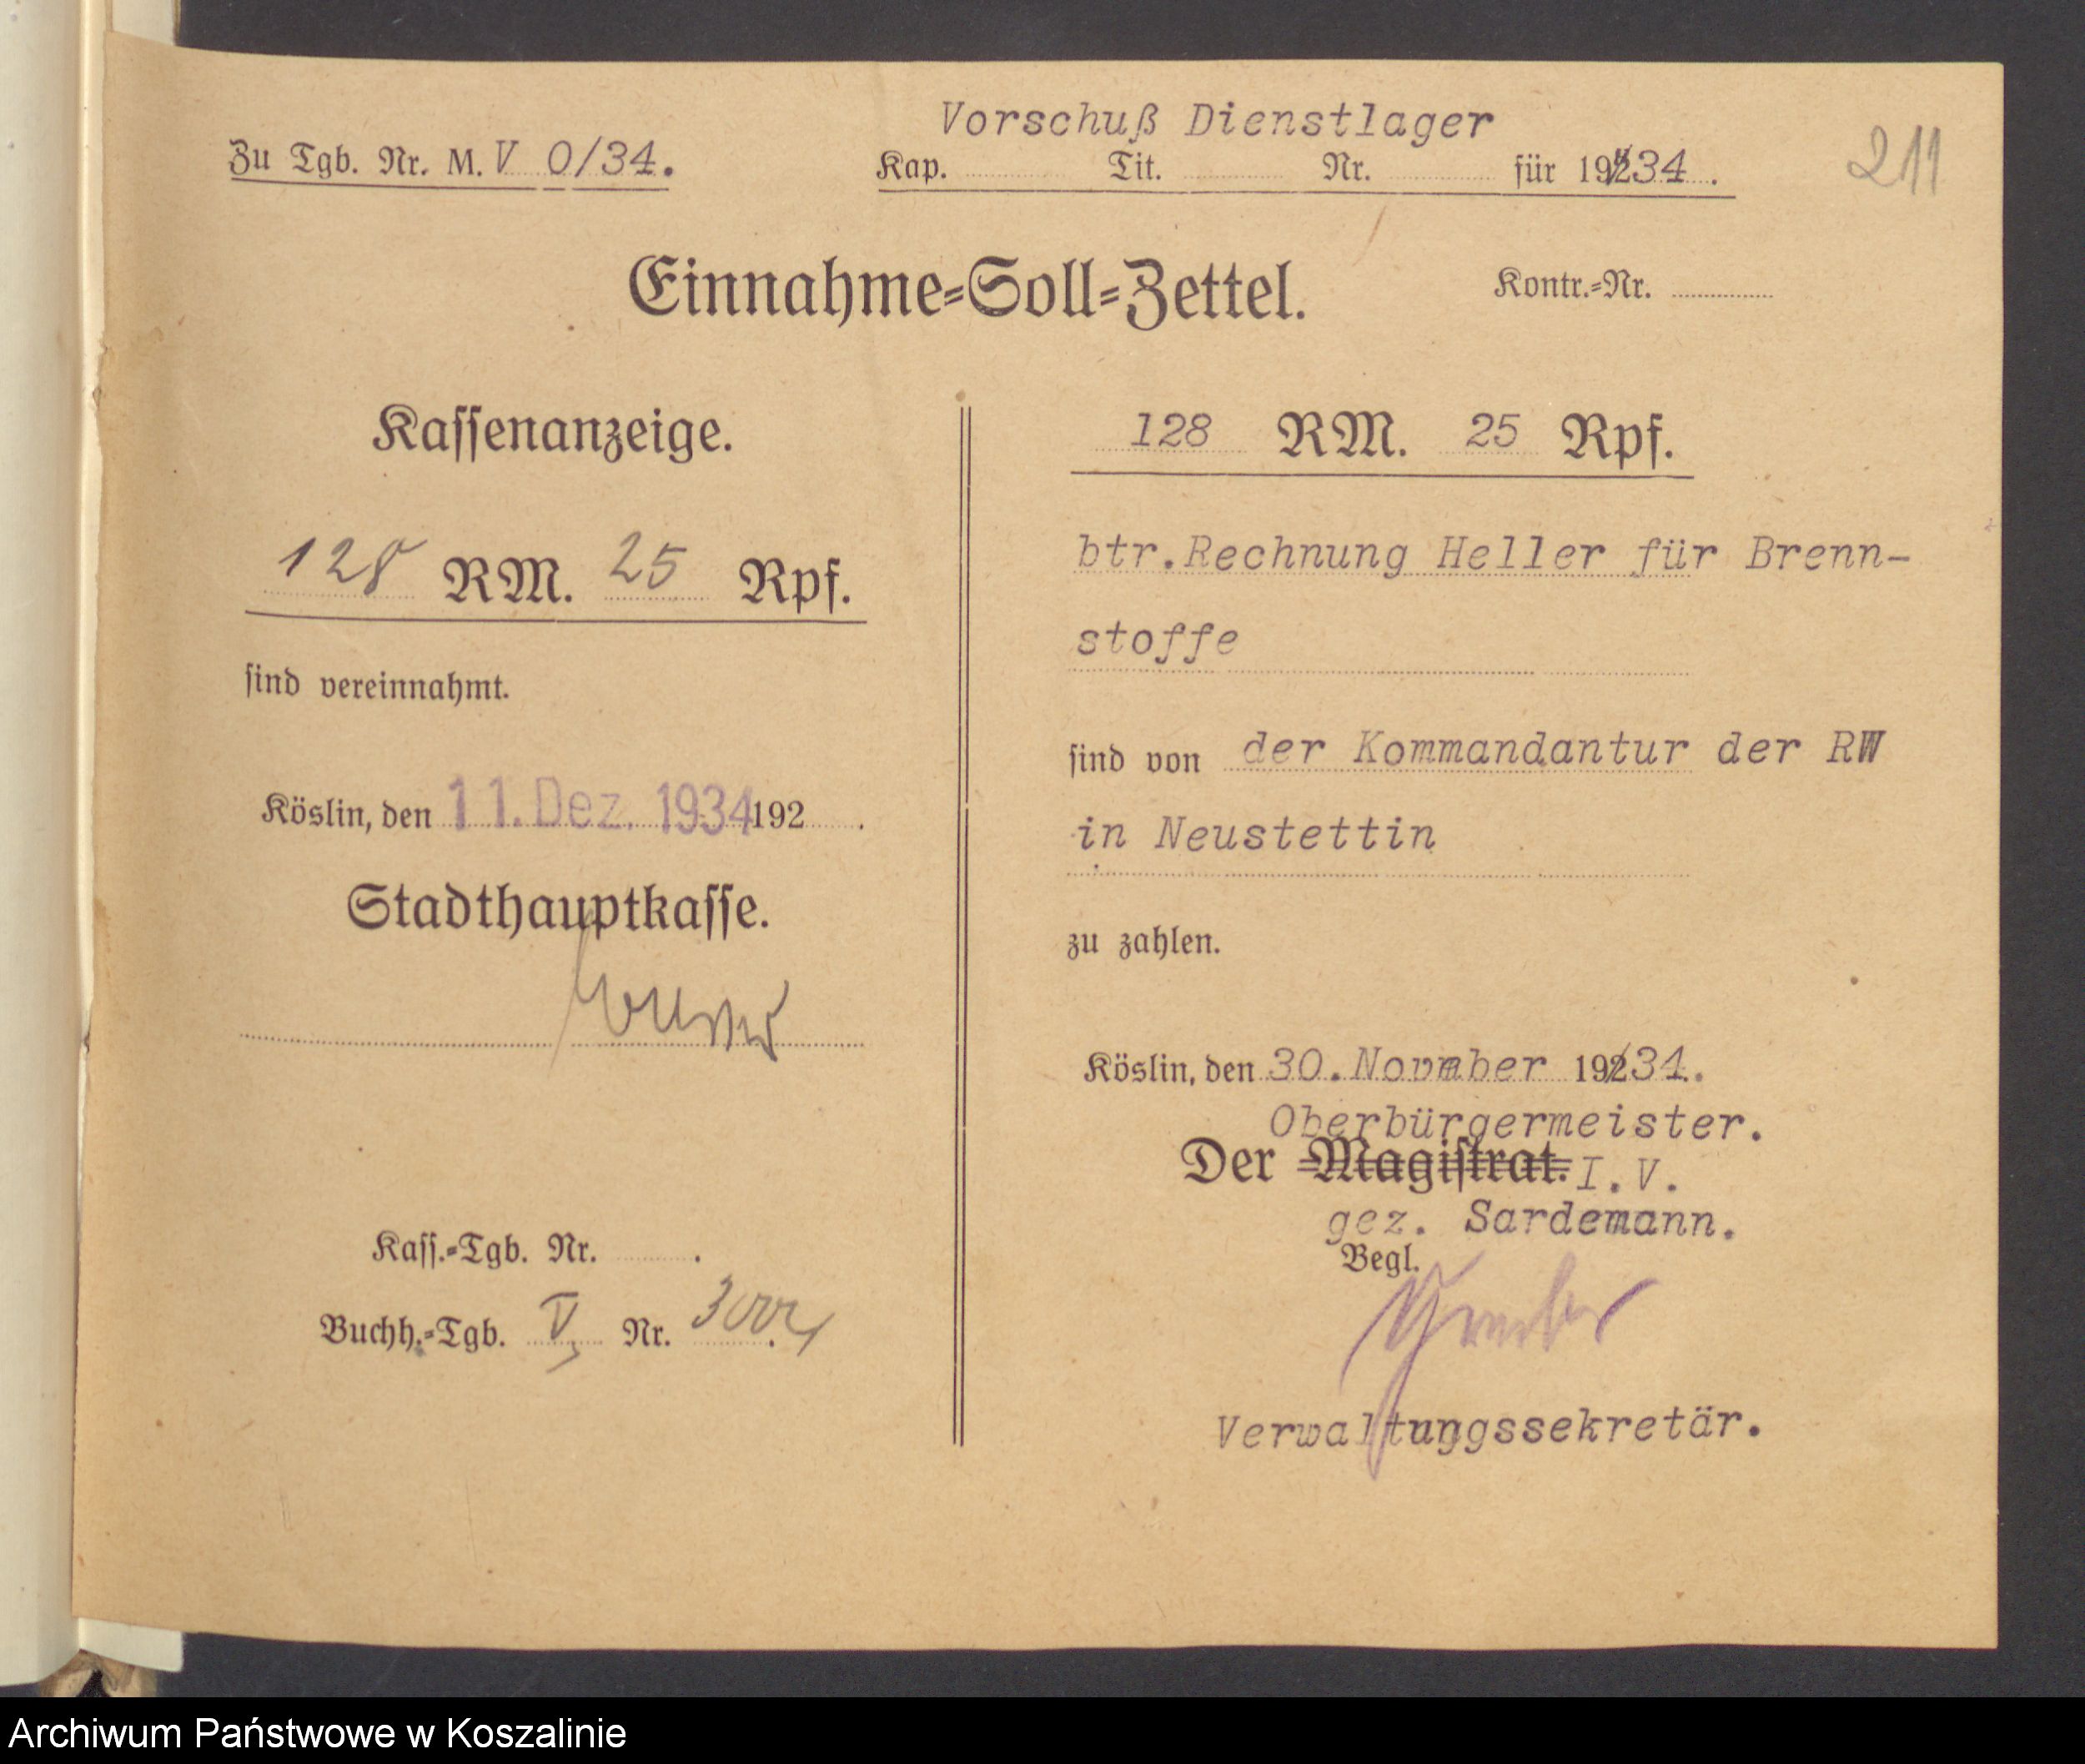 Vorschuß Dienstlager
Zu Tgb. Nr. M. V 0/34.
Kap. Tit. Nr. für 19234.
211
Einnahme-Soll-Zettel.
Kontr.-Nr.
Kassenanzeige.
128 RM. 25 Rpf.
sind vereinnahmt.
Köslin, den 11. Dez. 1934 192 .
Stadthauptkasse.
Kass.-Tgb. Nr. .
Buchh.-Tgb. V Nr.
128 RM. 25 Rpf.
btr.Rechnung Heller für Brenn-
stoffe
sind von der Kommandantur der RW
in Neustettin
zu zahlen.
Köslin, den 30.November 19234.
Oberbürgermeister.
Der Magistrat. I.V.
gez. Sardemann.
Begl.
Verwaltungssekretär.
Archiwum Państwowe w Koszalinie